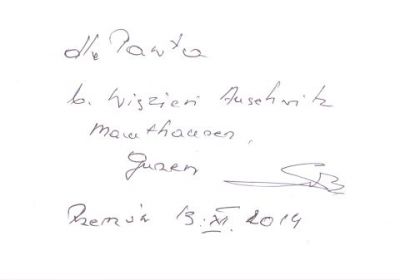 dla Pawła
b. więzień Auschwitz
Mauthausen,
Gusen
13.XI.2014